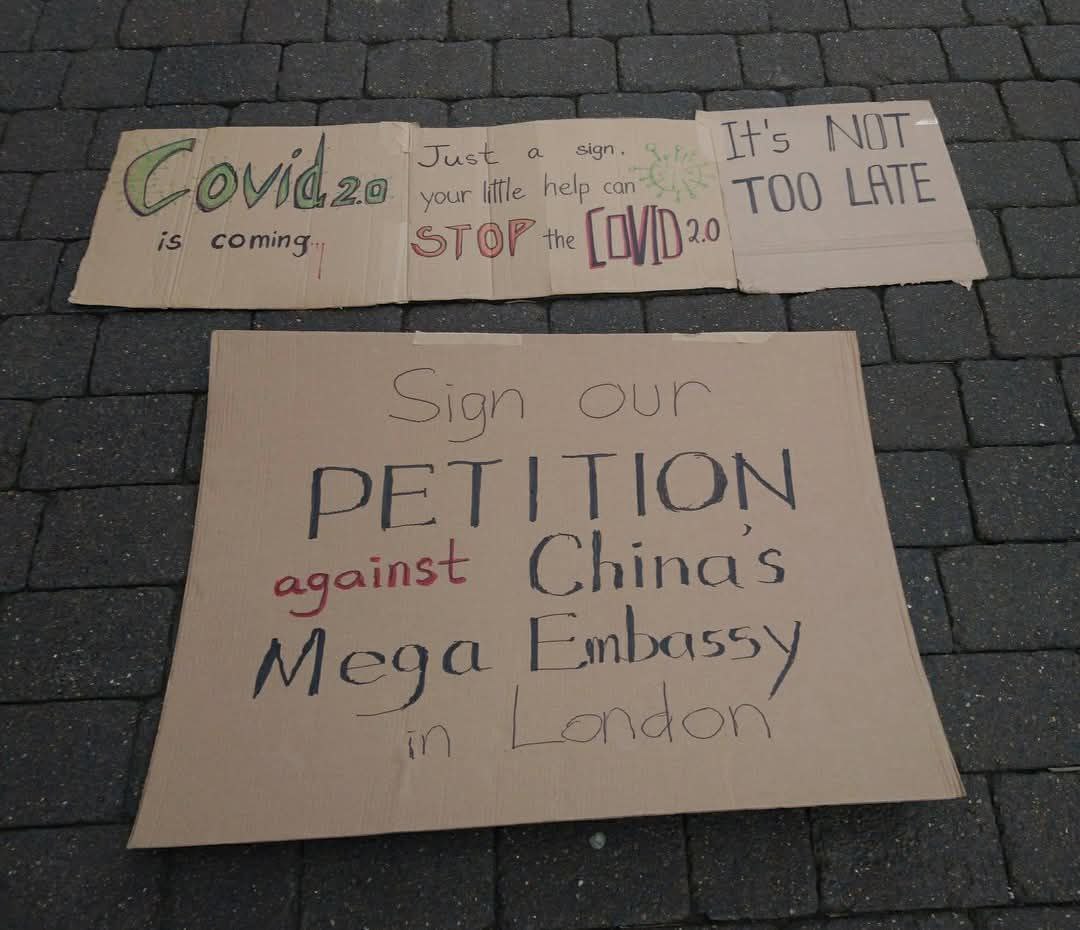 Covid 2.0
is coming...
Just a sign.
your little help can
STOP the COVID 2.0
It's NOT
TOO LATE
Sign our
PETITION
against China's
Mega Embassy
in London